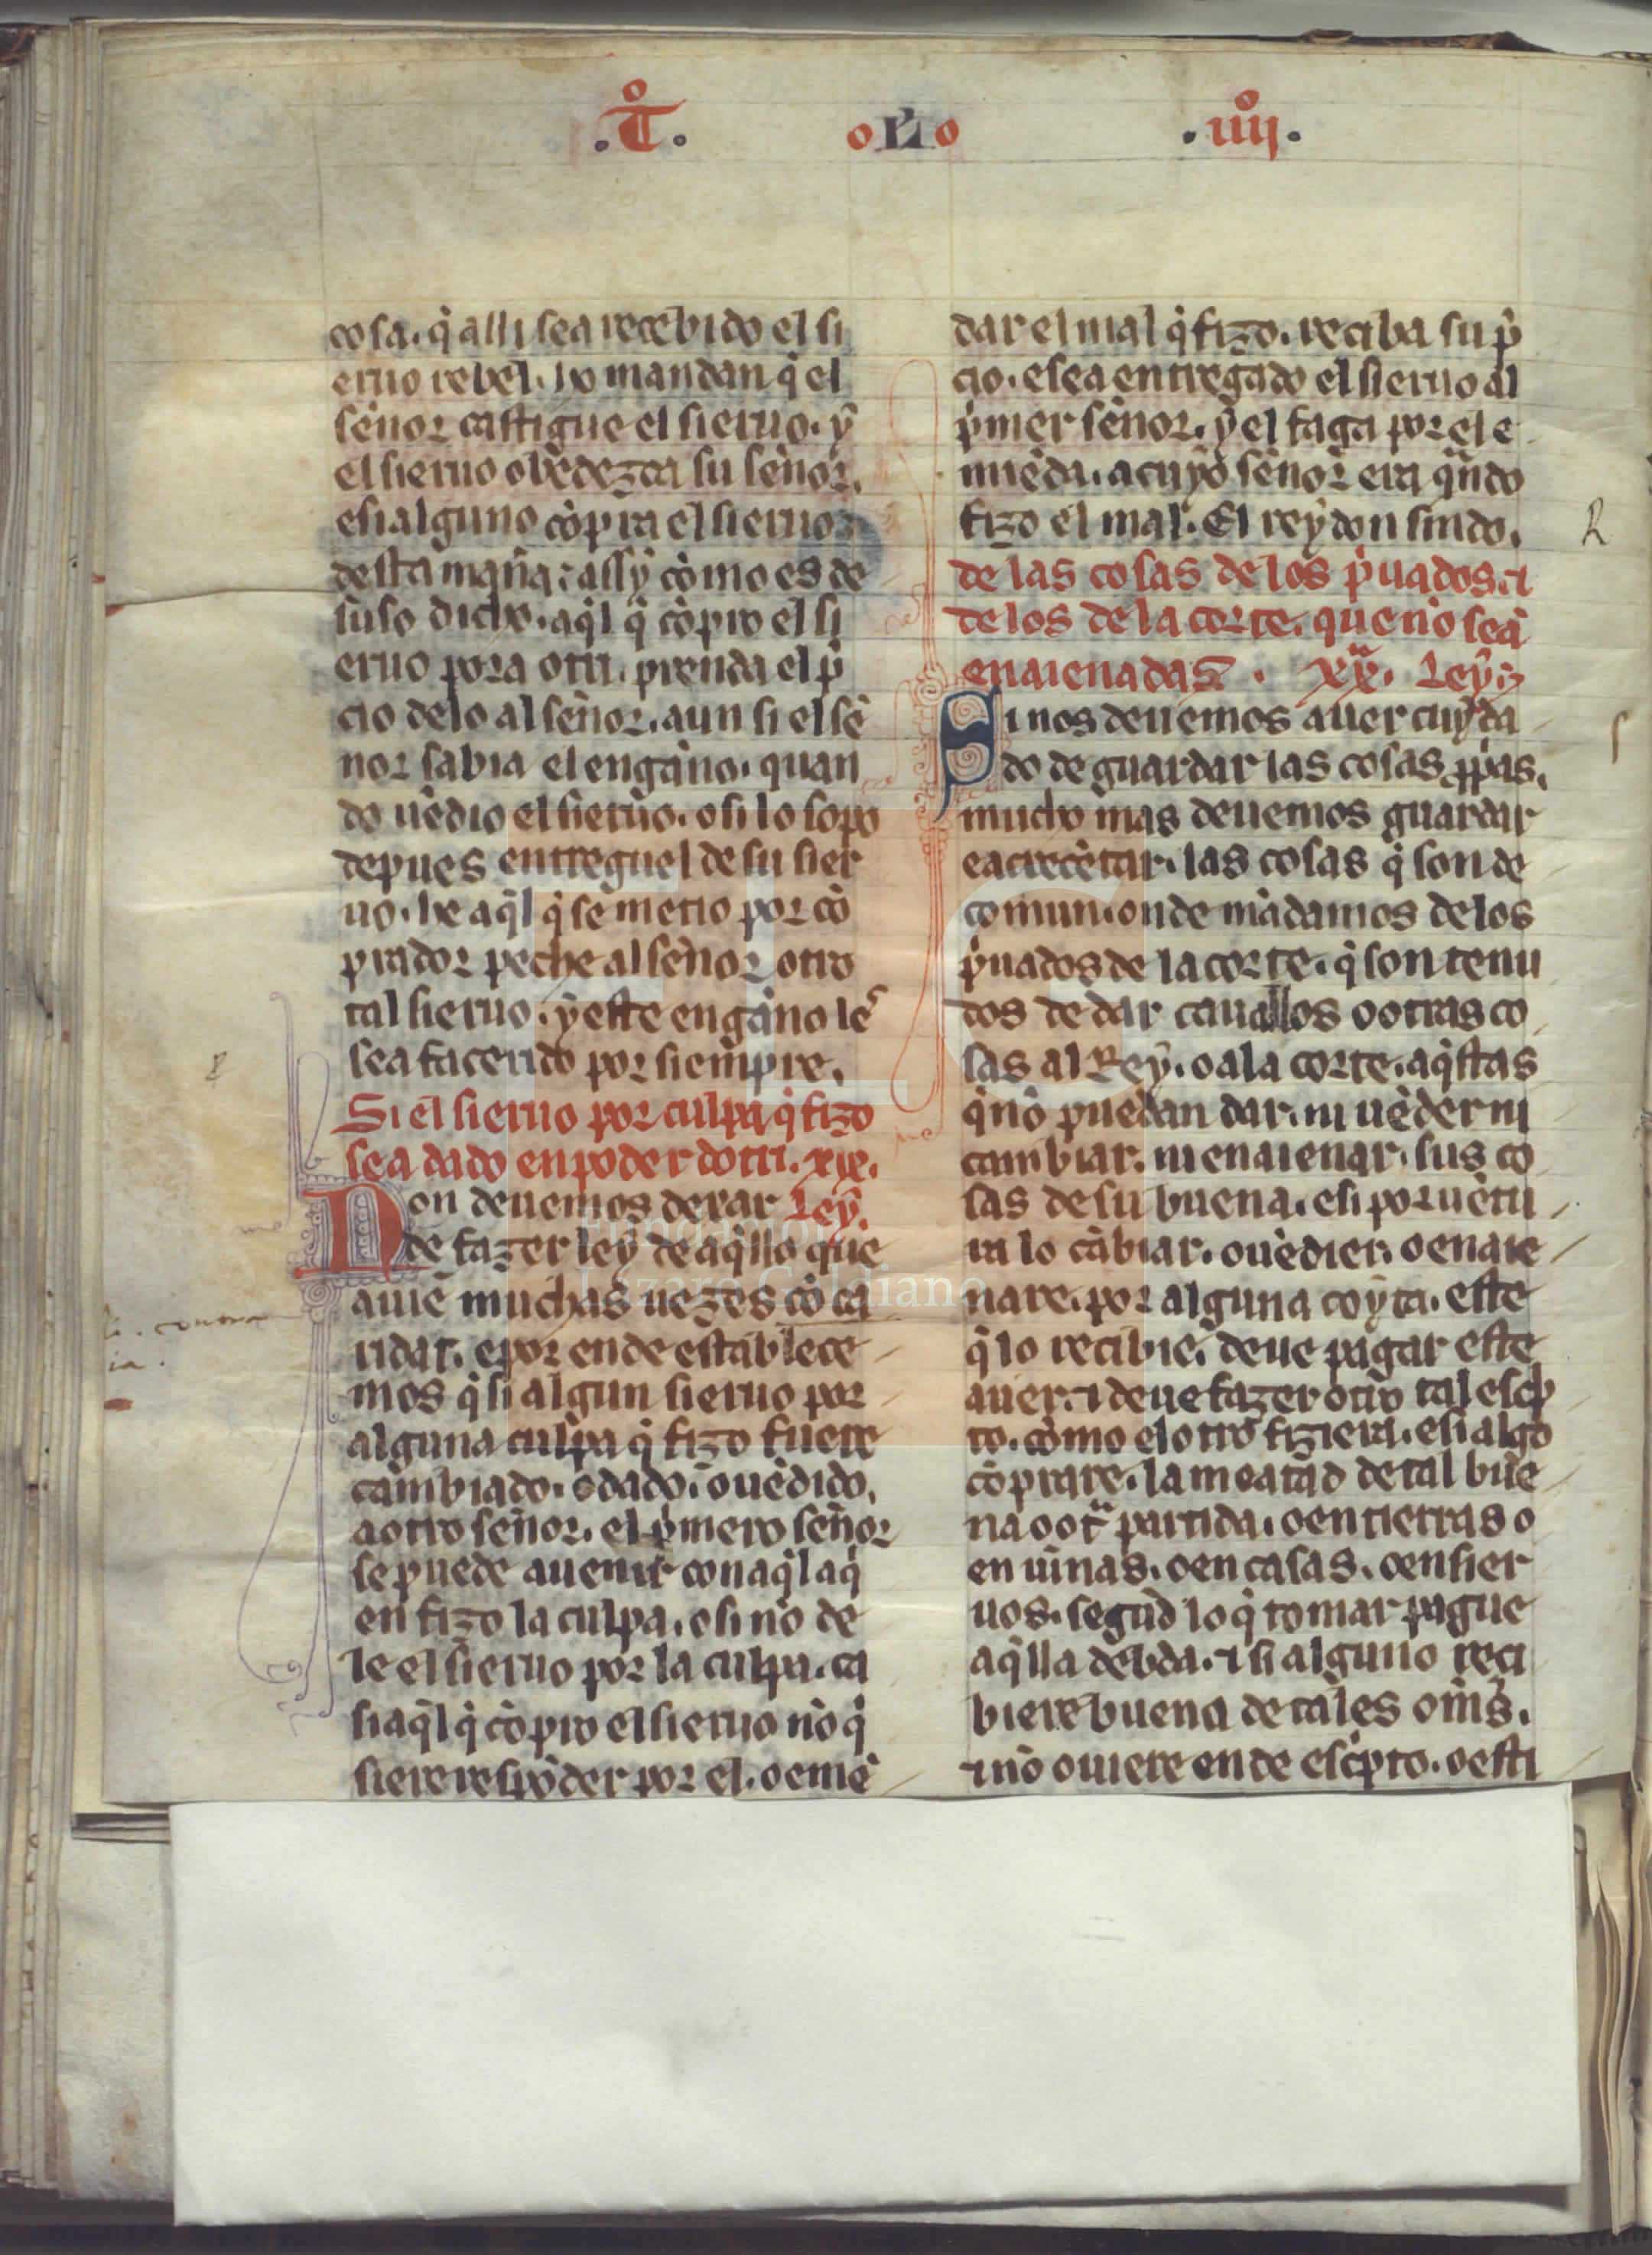 .T̊. oLo .iiij̊.
cosa. q̇ alli sea recebido el si
eruo rebel. lo mandan q̇ el
señor castigue el sieruo. ẏ
el sieruo obedezca su señor.
esi alguno cōpra el sieruo
desta mañ̃a: assẏ como es de
suso dicho. aq̇l q̇ cōpro el si
eruo pora otri. prenda el p̄
cio delo al señor. aun si el se
ñor sabia el engaño. quan
do uēdio el sieruo. o si lo sopo
depues entreguel de su sier
uo. he aq̇l q̇ se metio por cō
prador peche al señor otro
tal sieruo. ẏ este engaño le
sea facerido por siempre.
Si el sieruo por culpa q̇ fizo
sea dado en poder dotri. xix.
Non deuemos dexar Leẏ.
de fazer leẏ de aq̇llo que
auiē muchas uezes cō ca
ridat. e por ende establece
mos q̇ si algun sieruo por
alguna culpa q̇ fizo fuere
cambiado. o dado. o uēdido.
a otro señor. el p̍mero señor
se puede auenir con aq̇l a q̇
en fizo la culpa. o si no de
le el sieruo por la culpa. ca
si aq̇l q̇ cōpro el sieruo nō q̇
siere respōder por el. o emē
dar el mal q̇ fizo. reciba su p̄
cio. e sea entregado el sieruo al
p̍mer señor. ẏ el faga por el e
miēda. a cuẏo señor era q̃ndo
fizo el mal. El reẏ don sindo.
de las cosas de los p̍uados. ⁊
de los de la corte. que nō seā
enaienadas. xx.ª Leẏ.
Si nos deuemos auer cuẏda
do de guardar las cosas ꝓpas.
mucho mas deuemos guardar
e acrecētar. las cosas q̇ son de
comun. onde mādamos de los
p̍uados de la corte. q̇ son tenu
dos de dar cauallos o otras co
sas al Reẏ. o a la corte. aq̇stas
q̇ nō puedan dar. ni uēder ni
cambiar. ni enaienar. sus co
sas de su buena. esi por uētu
ra lo cābiar. o uēdier. o enaie
nare. por alguna coẏta. este
q̇ lo recibie. deue pagar este
auer. ⁊ deue fazer otro tal esc̍p
to. como el otro fiziera. esi algo
cōprare. la meatad de tal bue
na o ot̃ª partida. o en tierras o
en uiñas. o en casas. o en sier
uos. segūd lo q̇ tomar pague
aq̇lla debda. ⁊ si alguno reci
biere buena de tales om̃s.
⁊ nō ouiere ende esc̍pto. o esti